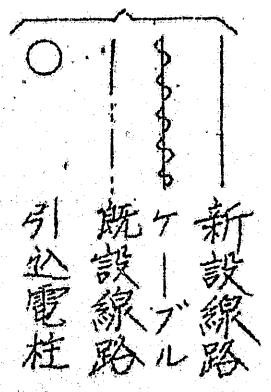 新設線路
ケーブル
既設線路
引込電柱